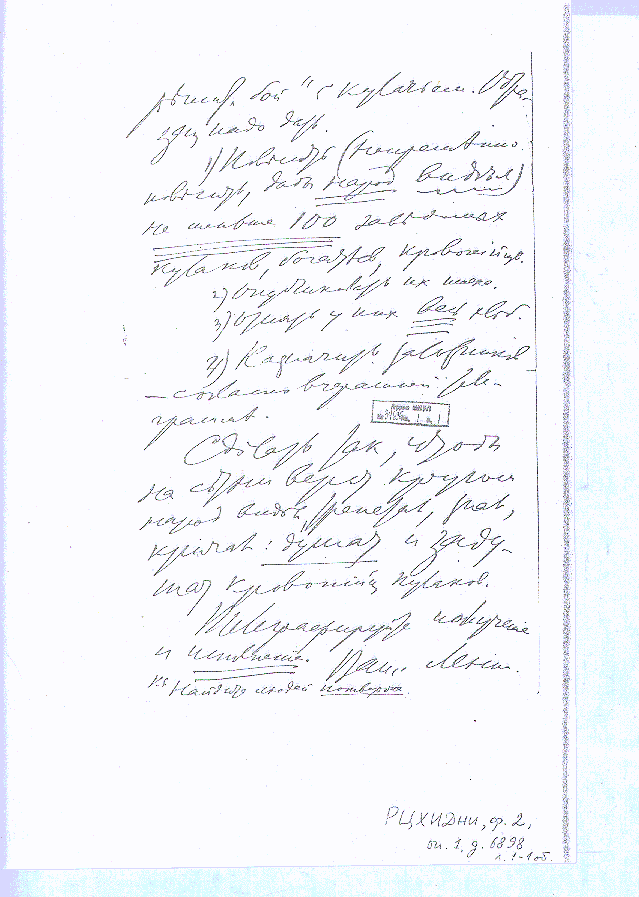 рѣшит. бой" с кулачьем. Обра-
зец надо дать.
1) Повесить (непременно
повесить, дабы народ видѣл)
не меньше 100 завѣдомых
кулаков, богатеев, кровопійцев.
2) Опубликовать их имена.
3) Отнять у них весь хлѣб.
4) Назначить заложников
— согласно вчерашней теле-
граммѣ.
Сдѣлать так, чтобы
на сотни верст кругом
народ видѣл, трепетал, знал,
кричал: душат и заду-
шат кровопійц кулаков.
Телеграфируйте получение
и исполнение. Ваш Ленин.
PS Найдите людей потверже.
РЦХИДНИ, ф. 2,
оп. 1, д. 6898
л. 1-1 об.